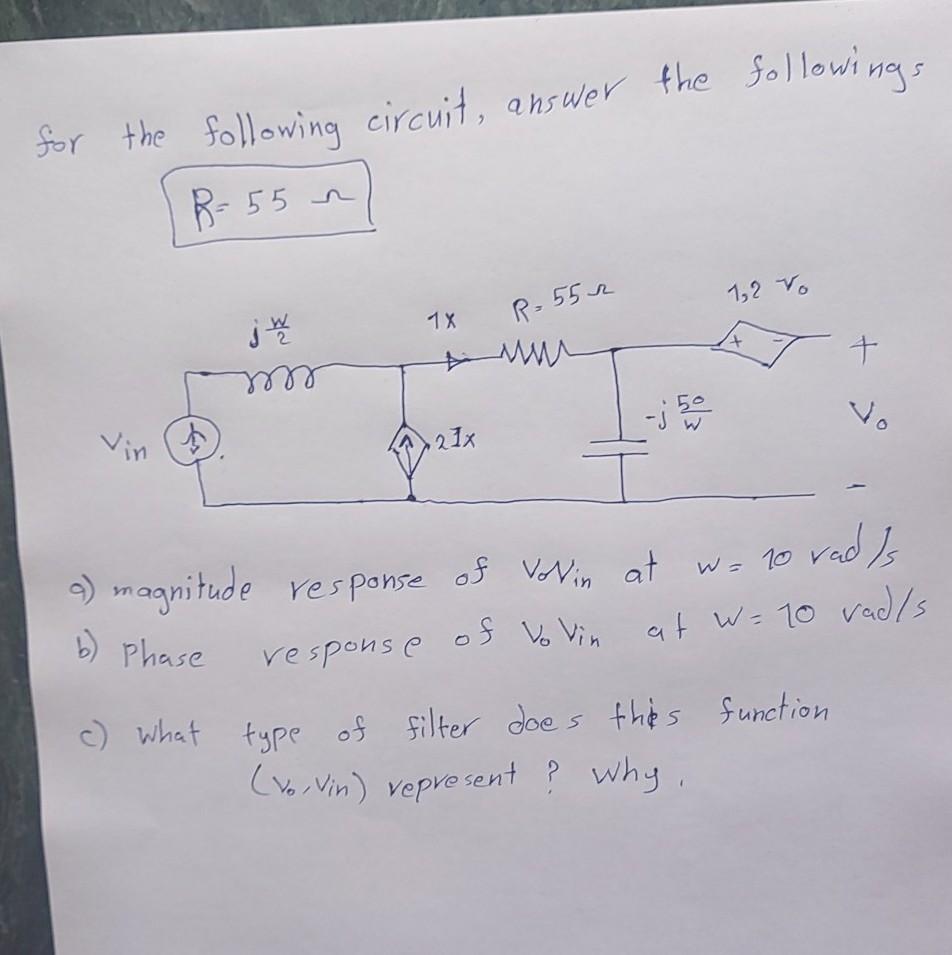 for the following circuit, answer the followings
R= 55 Ω
j w/2
1x
R= 55 Ω
1,2 Vo
+ -
+
Vin
2Ix
-j 50/w
Vo
-
a) magnitude response of Vo/Vin at w= 10 rad/s
b) Phase response of Vo Vin at w= 10 rad/s
c) what type of filter does this function
(Vo, Vin) represent ? why.